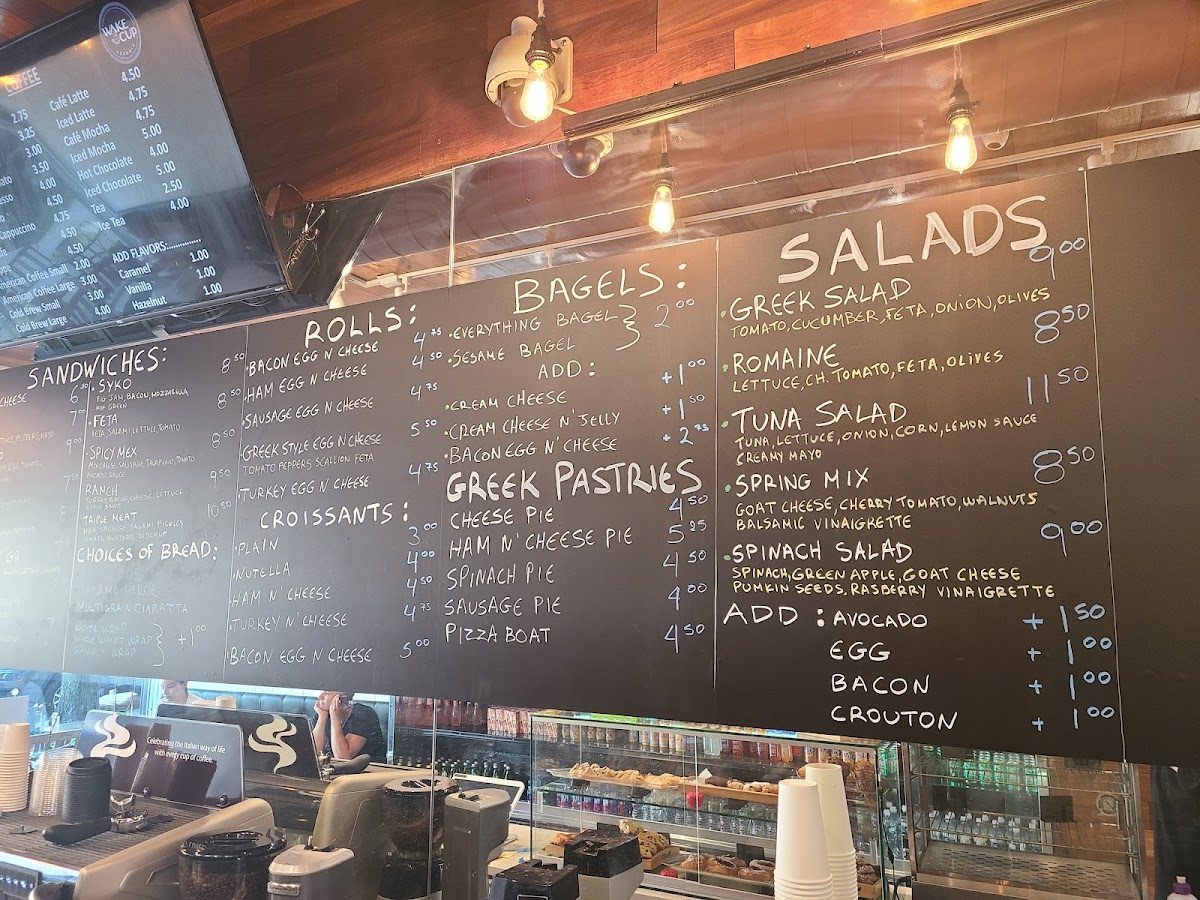 WAKE
CUP
COFFEE
2.75 Café Latte 4.50
3.25 Iced Latte 4.75
3.00 Café Mocha 4.75
3.50 Iced Mocha 5.00
4.00 Hot Chocolate 4.00
4.50 Iced Chocolate 5.00
4.75 Tea 2.50
4.50 Ice Tea 4.00
American Coffee Small 2.00
American Coffee Large 3.00
Cold Brew Small 3.00
Cold Brew Large 4.00
ADD FLAVORS:
Caramel 1.00
Vanilla 1.00
Hazelnut 1.00
SANDWICHES:
CHEESE 6.50
7.00
9.00
7.50
SYKO 8.50
FIG JAM, BACON, MOZZARELLA,
FETA 8.50
FETA, SALAMI, LETTUCE, TOMATO
SPICY MEX 8.50
RANCH 9.50
TRIPLE MEAT 10.50
HAM, SAUSAGE, SALAMI, PICKLES
TOMATO, MUSTARD, KETCHUP
CHOICES OF BREAD:
SESAME HEROE
MULTIGRAIN CIABATTA
WHITE WRAP
WHOLE WHEAT WRAP } +1.00
SPINACH WRAP
ROLLS:
BACON EGG N CHEESE 4.75
HAM EGG N CHEESE 4.50
SAUSAGE EGG N CHEESE 4.75
GREEK STYLE EGG N CHEESE 5.50
TOMATO PEPPERS SCALLION FETA
TURKEY EGG N CHEESE 4.75
CROISSANTS:
PLAIN 3.00
NUTELLA 4.00
HAM N' CHEESE 4.50
TURKEY N' CHEESE 4.75
BACON EGG N CHEESE 5.00
BAGELS:
EVERYTHING BAGEL } 2.00
SESAME BAGEL
ADD:
CREAM CHEESE +1.00
CREAM CHEESE N' JELLY +1.50
BACON EGG N' CHEESE +2.75
GREEK PASTRIES
CHEESE PIE 4.50
HAM N' CHEESE PIE 5.25
SPINACH PIE 4.50
SAUSAGE PIE 4.00
PIZZA BOAT 4.50
SALADS
GREEK SALAD 9.00
TOMATO, CUCUMBER, FETA, ONION, OLIVES
ROMAINE 8.50
LETTUCE, CH. TOMATO, FETA, OLIVES
TUNA SALAD 11.50
TUNA, LETTUCE, ONION, CORN, LEMON SAUCE
CREAMY MAYO
SPRING MIX 8.50
GOAT CHEESE, CHERRY TOMATO, WALNUTS
BALSAMIC VINAIGRETTE
SPINACH SALAD 9.00
SPINACH, GREEN APPLE, GOAT CHEESE
PUMKIN SEEDS, RASBERRY VINAIGRETTE
ADD: AVOCADO +1.50
EGG +1.00
BACON +1.00
CROUTON +1.00
Celebrating the Italian way of life
with every cup of coffee.